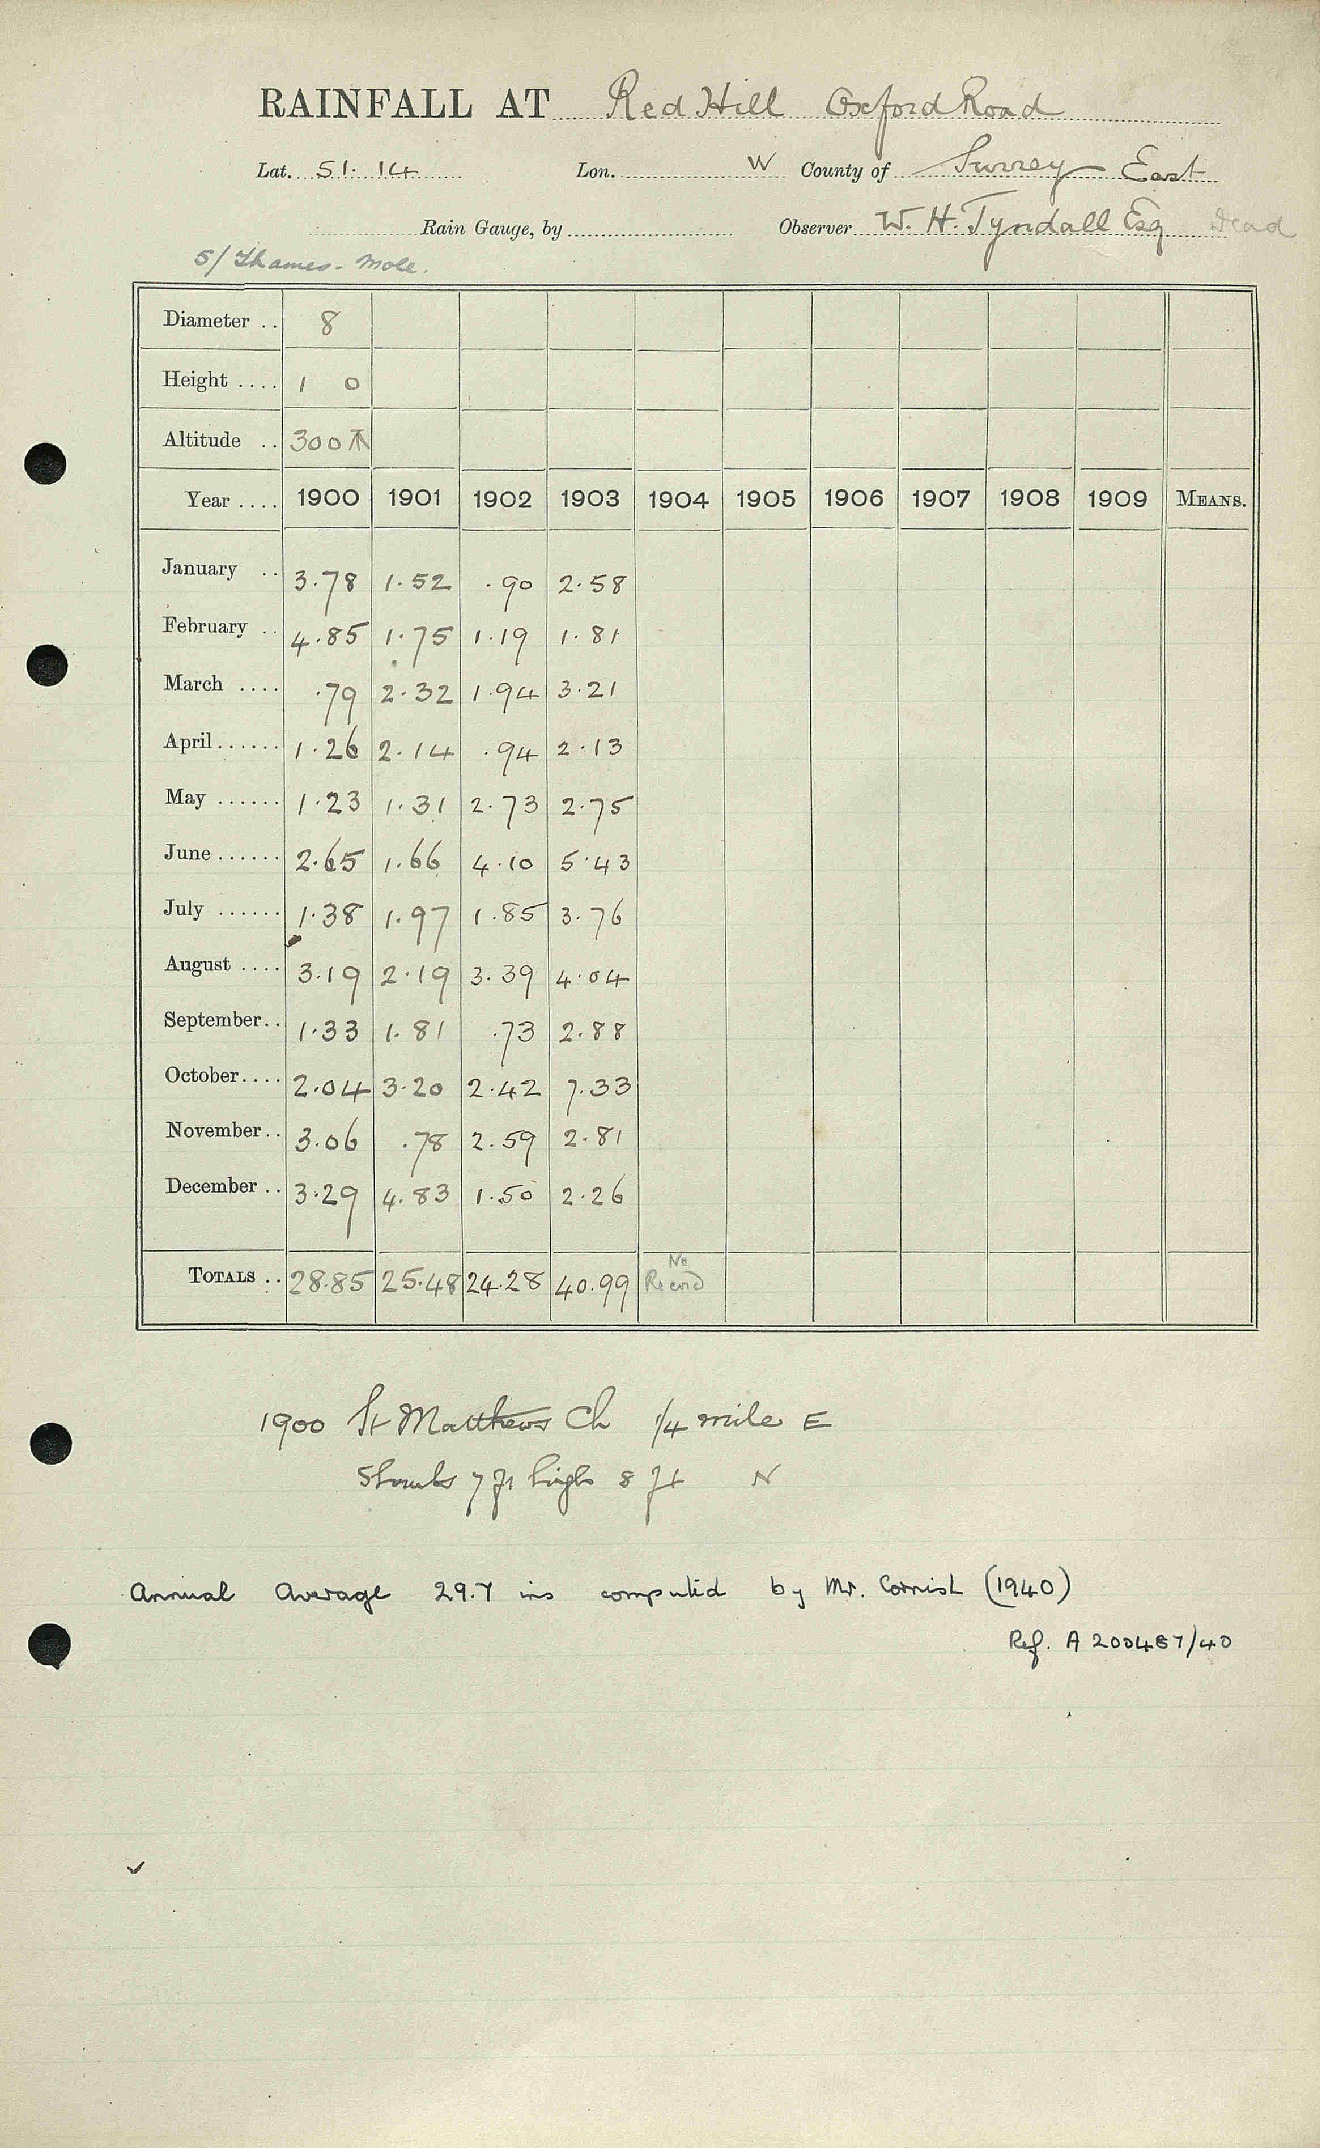 RAINFALL AT Red Hill Oxford Road
Lat. 51. 14 Lon. W County of Surrey East
Rain Gauge, by Observer W. H. Tyndall Esq Dead
5/ Thames - Mole.
Diameter .. 8
Height .... 1 0
Altitude .. 300
Year .... 1900 1901 1902 1903 1904 1905 1906 1907 1908 1909 MEANS.
January .. 3.78 1.52 .90 2.58
February .. 4.85 1.75 1.19 1.81
March .... .79 2.32 1.94 3.21
April ...... 1.26 2.14 .94 2.13
May ...... 1.23 1.31 2.73 2.75
June ...... 2.65 1.66 4.10 5.43
July ...... 1.38 1.97 1.85 3.76
August .... 3.19 2.19 3.39 4.04
September.. 1.33 1.81 .73 2.88
October.... 2.04 3.20 2.42 7.33
November.. 3.06 .78 2.59 2.81
December .. 3.29 4.83 1.50 2.26
TOTALS .. 28.85 25.48 24.28 40.99 No Record
1900 St Matthews Ch 1/4 mile E
Shrubs 7 ft high 8 ft N
Annual Average 29.7 ins computed by Mr. Cornish (1940)
Ref. A 200487/40